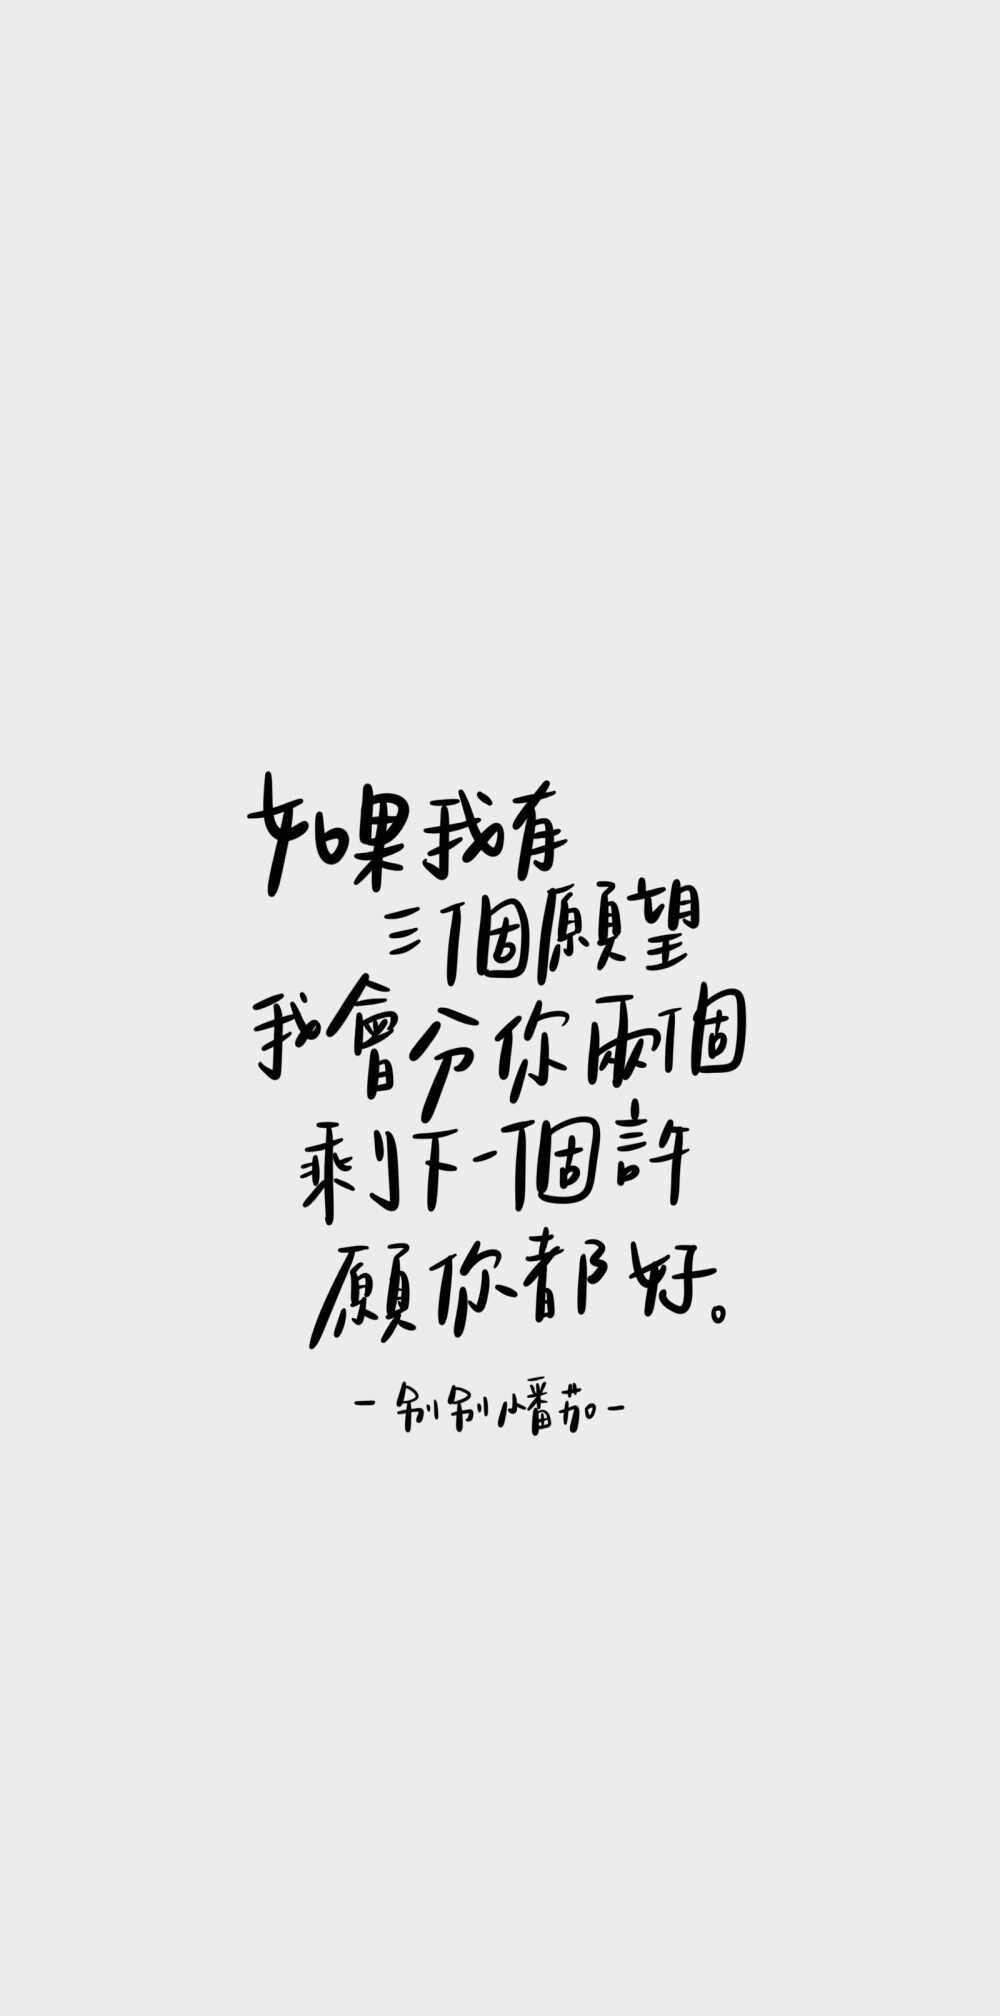 如果我有
三個願望
我會分你兩個
剩下一個許
願你都好。
-别别小番茄-